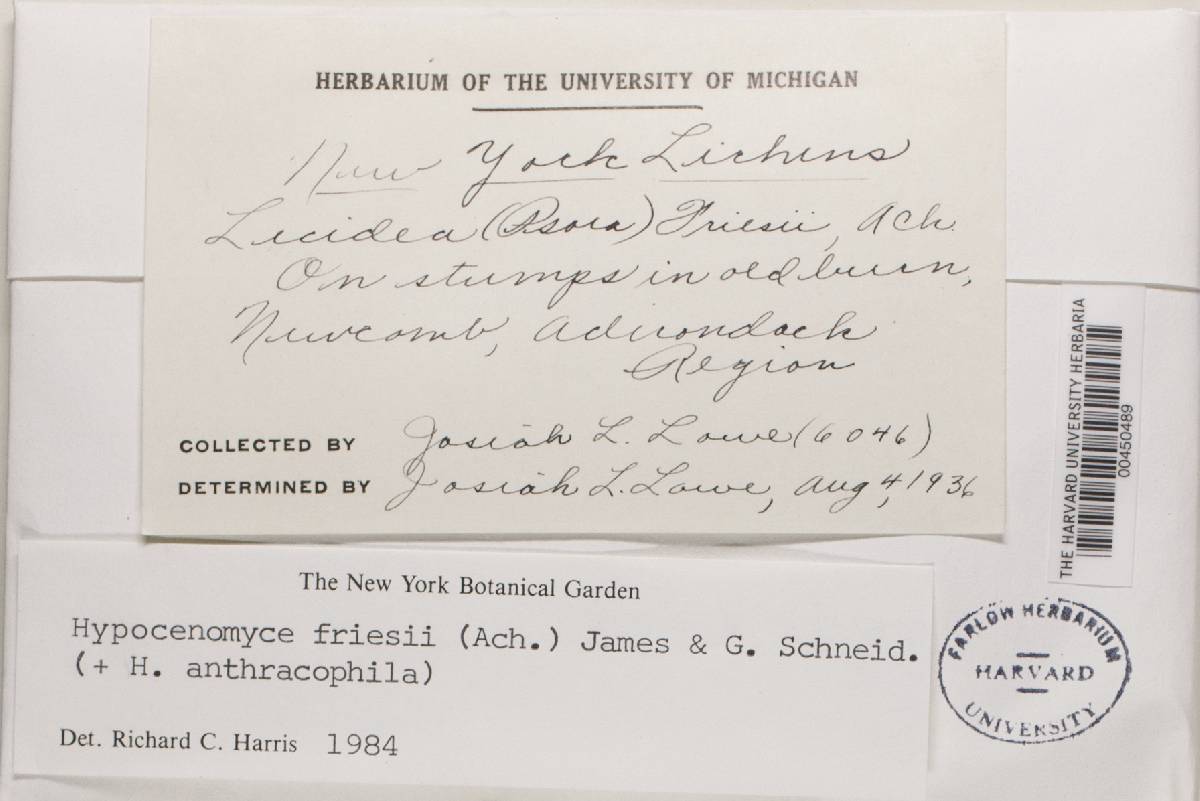 HERBARIUM OF THE UNIVERSITY OF MICHIGAN
New York Lichens
Lecidea (Psora) Friesii, Ach.
On stumps in old burn,
Newcomb, Adirondack
Region
COLLECTED BY Josiah L. Lowe (6046)
DETERMINED BY Josiah L. Lowe, Aug 4, 1936
THE HARVARD UNIVERSITY HERBARIA
00450489
The New York Botanical Garden
Hypocenomyce friesii (Ach.) James & G. Schneid.
(+ H. anthracophila)
Det. Richard C. Harris 1984
FARLOW HERBARIUM
HARVARD
UNIVERSITY